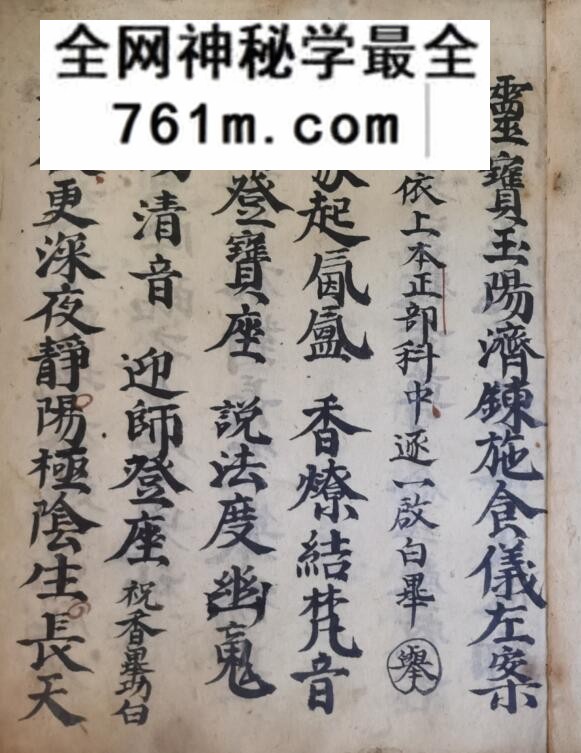 全网神秘学最全
761m.com
靈寶玉陽濟鍊施食儀左案
依上本正部科中逐一啟白畢 舉
起氤氳 香燎結梵音
登寶座 說法度幽魂
清音 迎師登座 祝香畢功白
更深夜靜陽極陰生長天